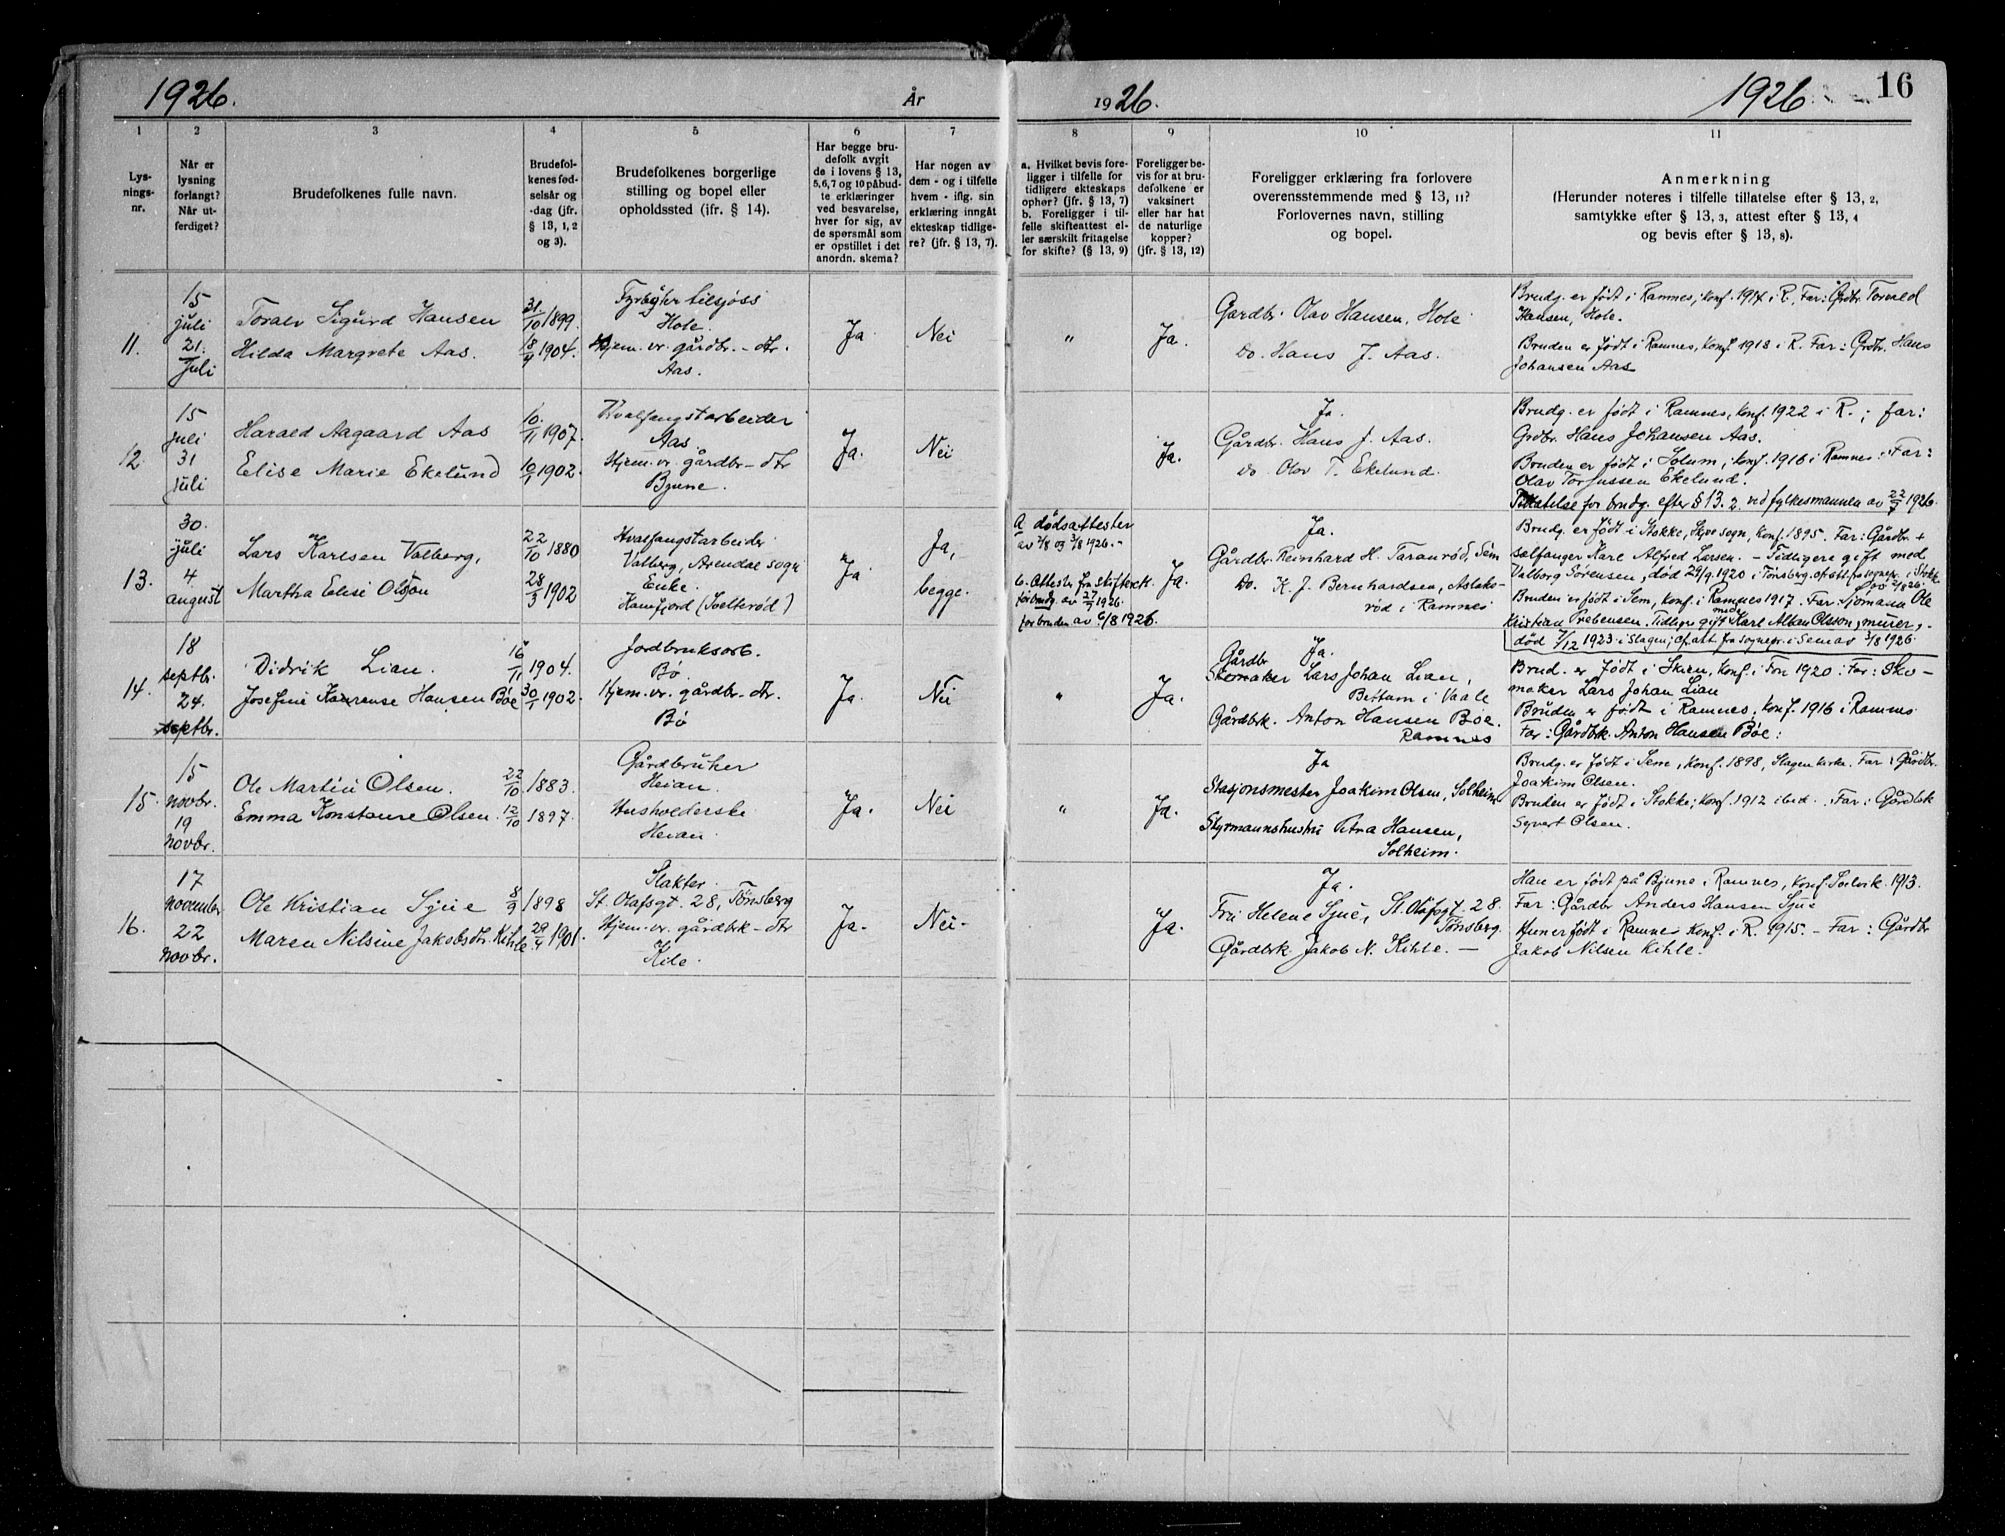 1926.
År
1926.
1926.
16
1
2
3
4
5
6
7
8
9
10
11
Lys-
nings-
nr.
Når er
lysning
forlangt?
Når ut-
ferdiget?
Brudefolkenes fulle navn.
Brudefol-
kenes fød-
selsår og
-dag (jfr.
§ 13, 1, 2
og 3).
Brudefolkenes borgerlige
stilling og bopel eller
opholdssted (ifr. § 14).
Har begge bru-
defolk avgit
de i lovens § 13,
5, 6, 7 og 10 påbud-
te erklæringer
ved besvarelse,
hver for sig, av
de spørsmål som
er opstillet i det
anordn. skema?
Har nogen av
dem - og i tilfelle
hvem - iflg. sin
erklæring inngått
ekteskap tidlige-
re? (jfr. § 13, 7).
a. Hvilket bevis fore-
ligger i tilfelle for
tidligere ekteskaps
ophør? (jfr. § 13, 7)
b. Foreligger i til-
felle skifteattest el-
ler særskilt fritagelse
for skifte? (§ 13, 9)
Foreligger be-
vis for at bru-
defolkene er
vaksinert
eller har hat
de naturlige
kopper?
(jfr. § 13, 12)
Foreligger erklæring fra forlovere
overensstemmende med § 13, 11?
Forlovernes navn, stilling
og bopel.
Anmerkning
(Herunder noteres i tilfelle tillatelse efter § 13, 2,
samtykke efter § 13, 3, attest efter § 13, 4
og bevis efter § 13, 8).
11.
15
juli
21.
juli
Toralv Sigurd Hansen
Hilda Margrete Aas.
31/10 1899.
18/9 1904.
Fyrbøter tilsjøss
Hole.
Hjem. vr. gårdbr. - dtr.
Aas.
Ja
Nei
"
Ja.
Gardbr. Olav Hansen, Hole
Do. Hans J. Aas.
Brudg. er født i Ramnes, konf. 1914 i R. Far: Grdbr. Torvald
Hansen, Hole.
Bruden er født i Ramnes, konf. 1918 i R. Far: Grdbr. Hans
Johansen Aas
12.
15
juli
31
juli
Harald Aagaard Aas
Elise Marie Ekelund
10/11 1907.
10/1 1902.
Hvalfangstarbeider
Aas.
Hjem. vr. gårdbr - dtr
Bjune.
Ja.
Nei
Ja.
Ja.
Gårdbr. Hans J. Aas.
Do. Olav T. Ekelund.
Brudg. er født i Ramnes, konf. 1922 i R.; far:
Grdbr. Hans Johansen Aas.
Bruden er født i Solum, konf. 1916 i Ramnes. Far:
Olav Torjussen Ekelund.
Tillatelse for brudg. efter § 13. 2. ved fylkesmannen av 22/7 1926.
13.
30.
juli
4
august
Lars Karlsen Valberg,
Martha Elise Olsson
22/10 1880
28/3 1902
Hvalfangstarbeider
Valberg, Arendal sogn
Enke
Hanefjord
Ja
Ja,
begge.
a dødsattester
av 2/8 og 3/8 1926.
b. Attester fra skifterett.
for brudg. av 27/7 1926.
for bruden av 6/8 1926.
Ja.
Ja.
Gårdbr. Reinhard H. Taranrød, Sem
Do. K. J. Bernhardsen, Aslaks-
rød i Ramnes
Brudg. er født i Stokke, Skjee sogn, konf. 1895. Far: Gårdbr +
sælfanger Karl Alfred Larsen. - Tidligere gift med
Valborg Sørensen, død 29/9. 1920 i Tønsberg, ifl. att fra sognepr. i Stokke
av 2/8 26.
Bruden er født i Sem, konf. i Ramnes 1917. Far: Sjømann Ole
Kristian Prebensen. Tidligere gift med Karl Allan Olsson, murer, -
død 7/12 1923 i Slagen; ifl. att fra sognepr. i Sem av 3/8 1926.
14.
18
septbr.
24.
septbr.
Didrik Lian.
Josefine Kaurense Hansen Bøe
16/11 1904.
30/1 1902.
Jordbruksarb.
Bø.
Hjem. vr. gårdbr. dtr.
Bø
Ja.
Nei
"
Ja.
Ja.
Gårdbr
Skomaker Lars Johan Lian,
Bettum i Vaale
Gårdbrk. Anton Hansen Bøe.
Ramnes
Brud. er født i Skien, konf. i Fon 1920. Far: Sko-
maker Lars Johan Lian
Bruden er født i Ramnes, konf. 1916 i Ramnes
Far: Gårdbrk. Anton Hansen Bøe:
15.
15
novbr.
19
novbr.
Ole Martin Olsen.
Emma Konstanse Olsen.
22/10 1883.
12/10 1897.
Gårdbruker
Heian.
Husholderske
Heian.
Ja.
Nei
"
Ja.
Ja
Stasjonsmester Joakim Olsen, Solheim
Styrmannshustru Petra Hansen,
Solheim.
Brudg. er født i Sem, konf. 1898, Slagen kirke. Far: Gårdbr.
Joakim Olsen.
Bruden er født i Stokke, konf. 1912 ibid. Far: Gårdbrk
Syvert Olsen.
16.
17
november
22
novbr.
Ole Kristian Sjue
Maren Nilsine Jakobsdtr. Kihle
8/9 1898
29/4 1901.
Slakter.
St. Olafsgt. 28, Tønsberg
Hjem. vr. gårdbrk - dtr
Kile.
Ja.
Nei.
Ja.
Ja.
Fru Helene Sjue, St. Olafsgt. 28.
Tønsberg.
Gårdbrk. Jakob N. Kihle. —
Han er født på Bjune i Ramnes, konf. Solvik. 1913.
Far: Gårdbr Anders Hansen Sjue
Hun er født i Ramnes konf. i R. 1915. - Far: Gårdbr
Jakob Nilsen Kihle.